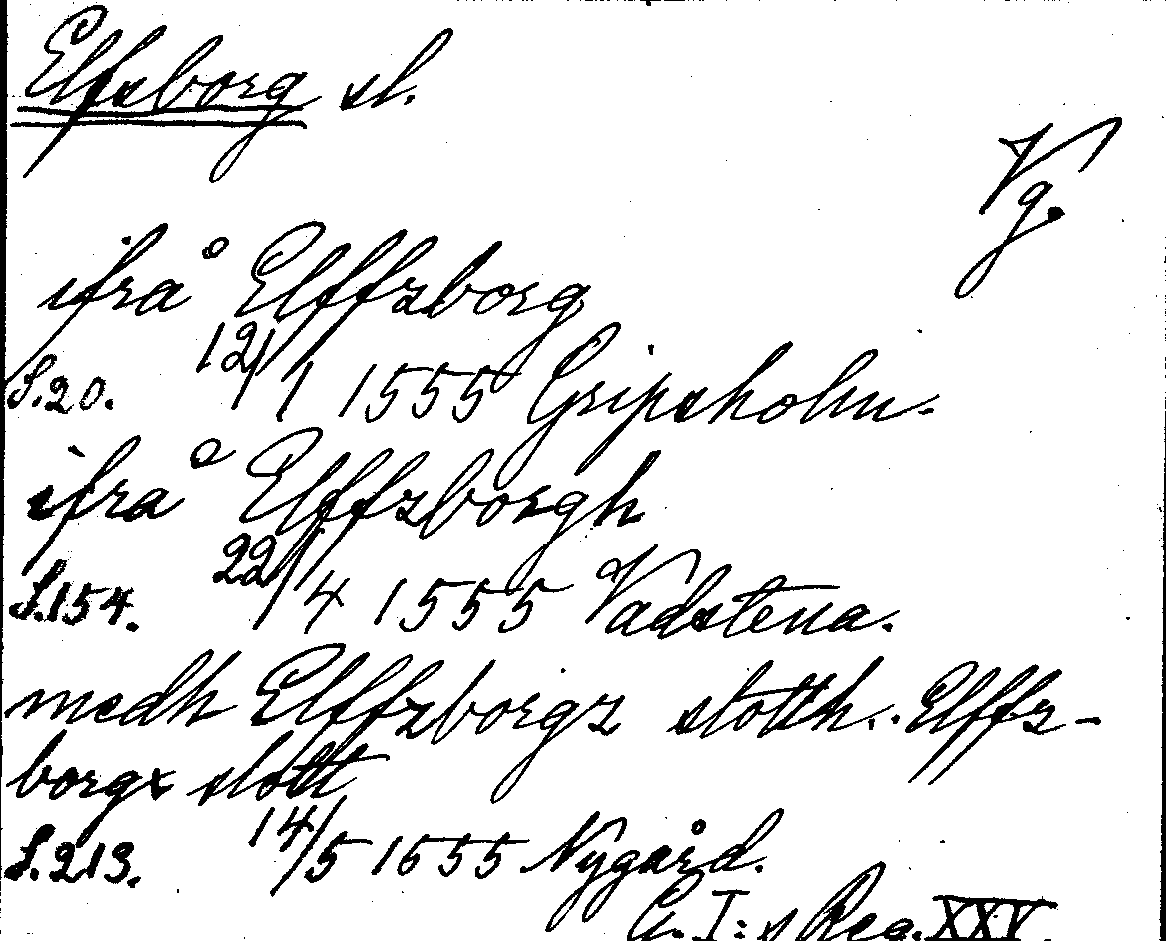 Elfsborg sl.
Vg.
ifrå Elffzborg
S.20. 12/1 1555 Gripsholm.
ifrå Elffzborgh
S.154. 22/4 1555 Vadstena.
medh Elffzborgz slotth.. Elffz-
borgx slott
S.213. 14/5 1555 Nygård.
G. I:s Reg. XXV.